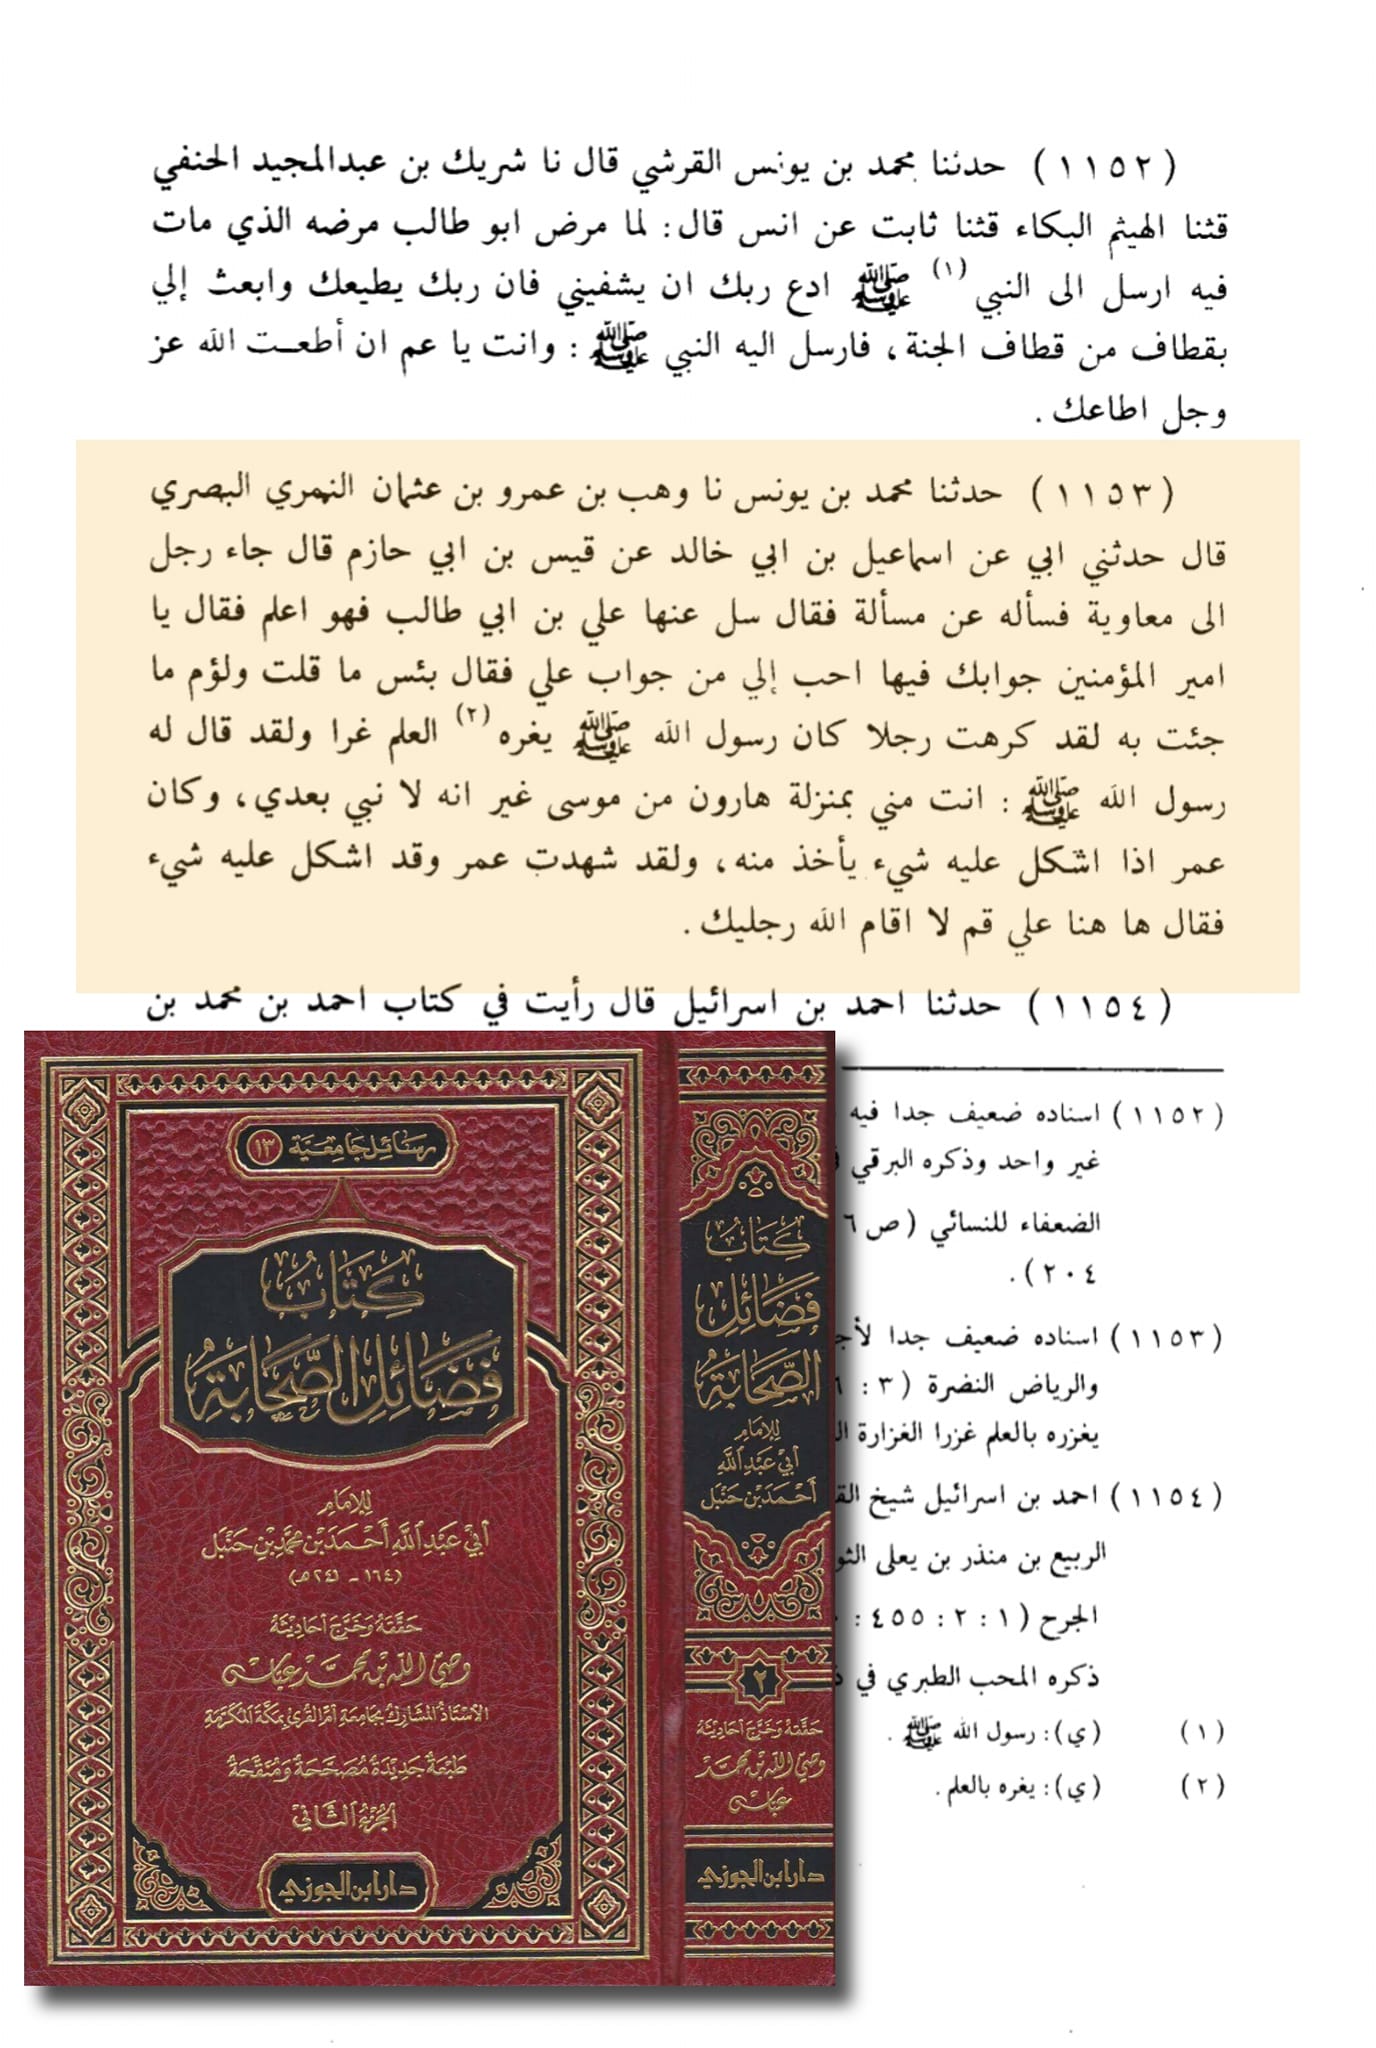 (١١٥٢) حدثنا محمد بن يونس القرشي قال نا شريك بن عبدالمجيد الحنفي
قثنا الهيثم البكاء قثنا ثابت عن انس قال: لما مرض ابو طالب مرضه الذي مات
فيه ارسل الى النبي (١) ﷺ ادع ربك ان يشفيني فان ربك يطيعك وابعث إلي
بقطاف من قطاف الجنة، فارسل اليه النبي ﷺ : وانت يا عم ان أطعت الله عز
وجل اطاعك.
(١١٥٣) حدثنا محمد بن يونس نا وهب بن عمرو بن عثمان النمري البصري
قال حدثني ابي عن اسماعيل بن ابي خالد عن قيس بن ابي حازم قال جاء رجل
الى معاوية فسأله عن مسألة فقال سل عنها علي بن ابي طالب فهو اعلم فقال يا
امير المؤمنين جوابك فيها احب إلي من جواب علي فقال بئس ما قلت ولؤم ما
جئت به لقد كرهت رجلا كان رسول الله ﷺ يغره (٢) العلم غرا ولقد قال له
رسول الله ﷺ : انت مني بمنزلة هارون من موسى غير انه لا نبي بعدي، وكان
عمر اذا اشكل عليه شيء يأخذ منه، ولقد شهدت عمر وقد اشكل عليه شيء
فقال ها هنا علي قم لا اقام الله رجليك.
(١١٥٤) حدثنا احمد بن اسرائيل قال رأيت في كتاب احمد بن محمد بن
(١١٥٢) اسناده ضعيف جدا فيه
غير واحد وذكره البرقي
الضعفاء للنسائي (ص
٢٠٤).
(١١٥٣) اسناده ضعيف جدا
والرياض النضرة (٣ :
يغزره بالعلم غزرا الغزارة
(١١٥٤) احمد بن اسرائيل شيخ
الربيع بن منذر بن يعلى
الجرح (١ : ٢ : ٤٥٥ :
ذكره المحب الطبري في
(١) (ي): رسول الله ﷺ .
(٢) (ي): يغره بالعلم.
رسائل جامعية ١٣
كتاب
فضائل الصحابة
للإمام
أبي عبد الله أحمد بن محمد بن حنبل
(١٦٤ - ٢٤١ هـ)
حققه وخرج أحاديثه
وصي الله بن محمد عباس
الأستاذ المشارك بجامعة أم القرى بمكة المكرمة
طبعة جديدة مصححة ومنقحة
الجزء الثاني
دار ابن الجوزي
كتاب
فضائل
الصحابة
للإمام
أبي عبد الله
أحمد بن حنبل
٢
حققه وخرج أحاديثه
وصي الله بن محمد
عباس
دار ابن الجوزي